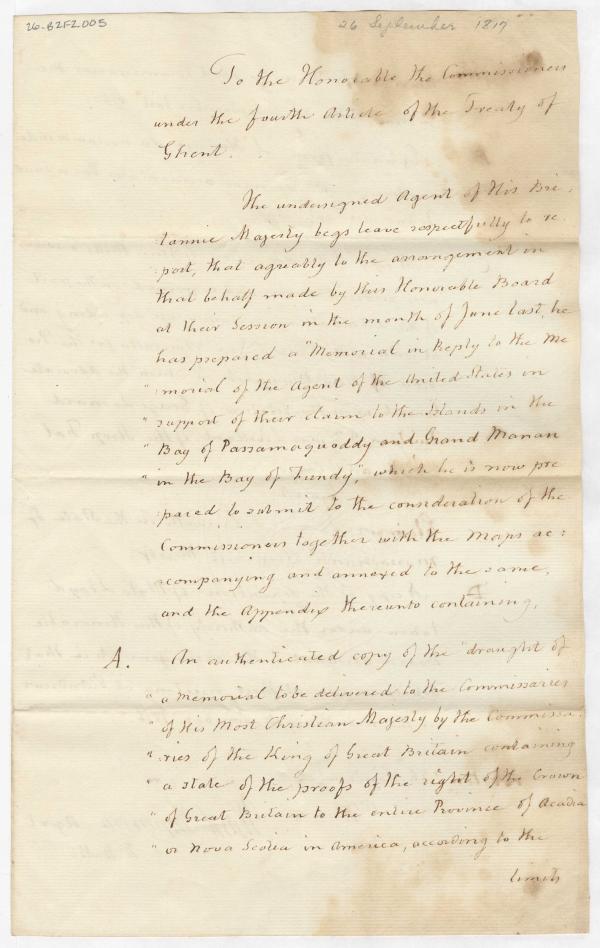 26-B2F2.005
26 September 1817
To the Honorable the Commissioners
under the fourth Article of the Treaty of
Ghent.
The undersigned Agent of His Bri-
tannic Majesty begs leave respectfully to re-
port, that agreably to the arrangement in
that behalf made by this Honorable Board
at their Session in the month of June last, he
has prepared a "Memorial in Reply to the Me
" morial of the Agent of the United States in
" support of their claim to the Islands in the
" Bay of Passamaquoddy and Grand Manan
" in the Bay of Fundy", which he is now pre
pared to submit to the consideration of the
Commissioners together with the Maps ac:
:companying and annexed to the same,
and the Appendix thereunto containing,
A. An authenticated copy of the "draught of
" a Memorial to be delivered to the Commissaries
" of His Most Christian Majesty by the Commissa-
" ries of the King of Great Britain containing
" a state of the proofs of the right of the Crown
" of Great Britain to the entire Province of Acadia
" or Nova Scotia in America, according to the
limits